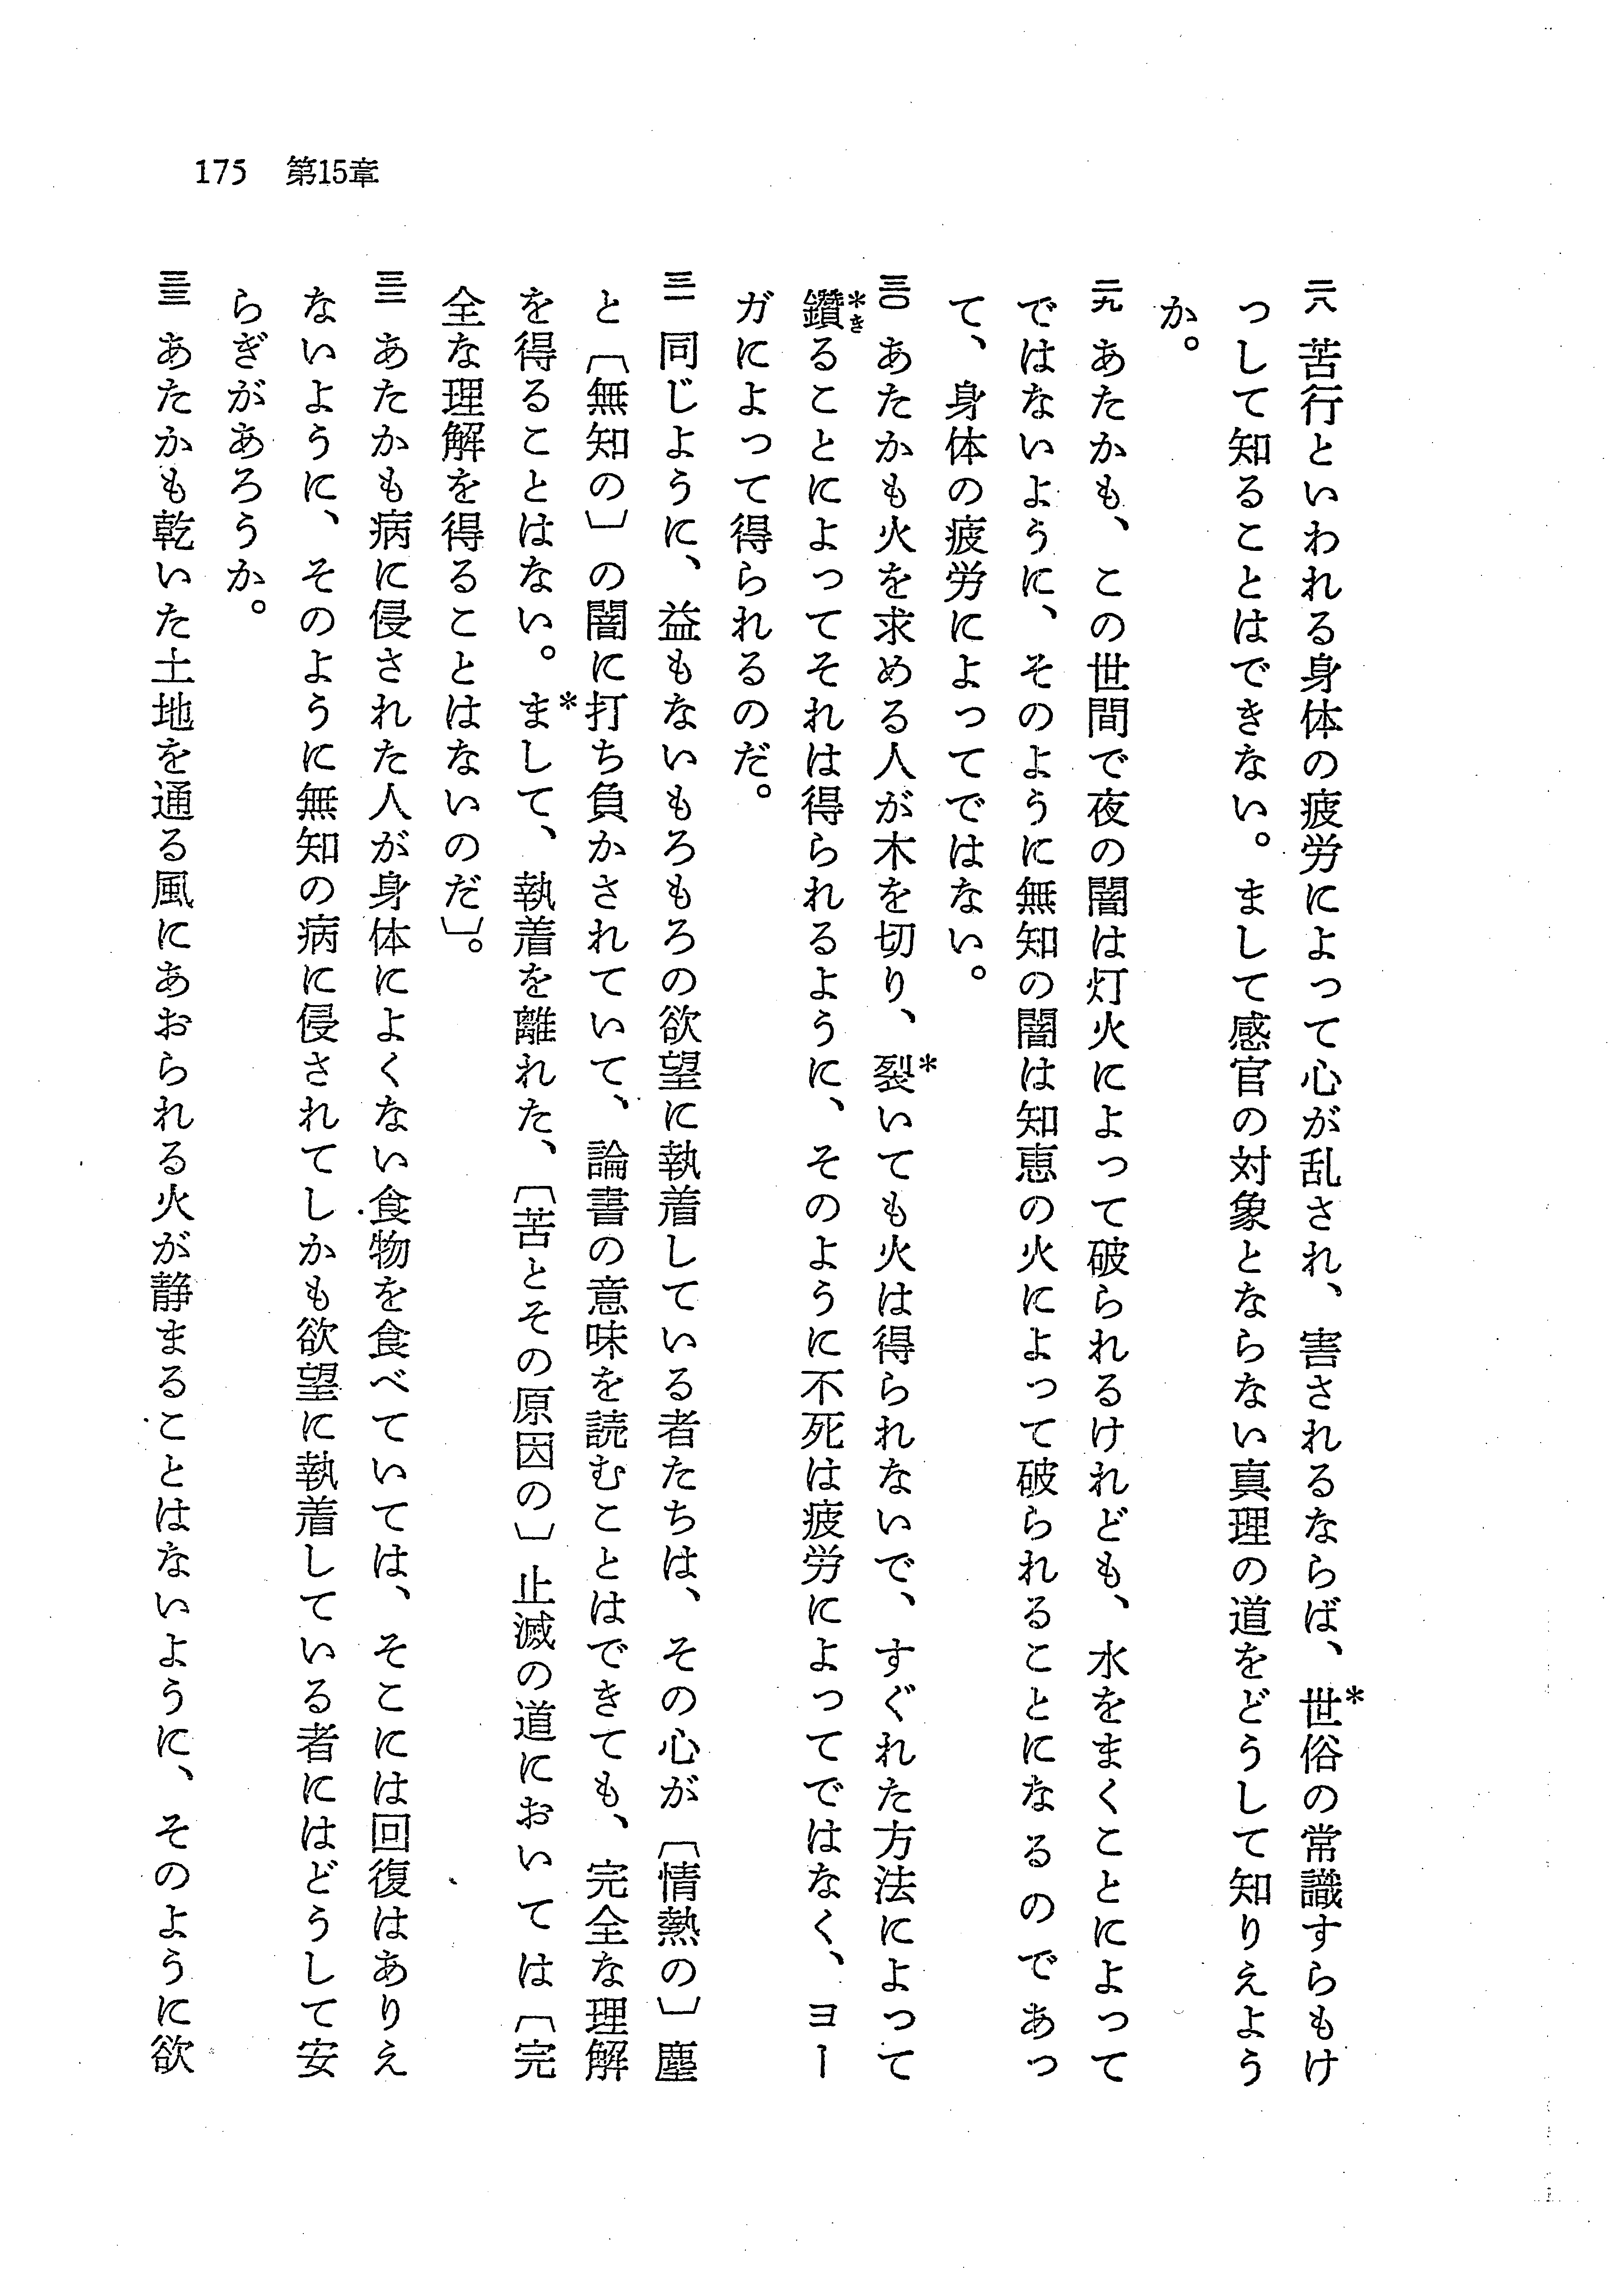 175 第15章
二八 苦行といわれる身体の疲労によって心が乱され、害されるならば、*世俗の常識すらもけ
っして知ることはできない。まして感官の対象とならない真理の道をどうして知りえよう
か。
二九 あたかも、この世間で夜の闇は灯火によって破られるけれども、水をまくことによって
ではないように、そのように無知の闇は知恵の火によって破られることになるのであっ
て、身体の疲労によってではない。
三〇 あたかも火を求める人が木を切り、*裂いても火は得られないで、すぐれた方法によって
*鑽きることによってそれは得られるように、そのように不死は疲労によってではなく、ヨー
ガによって得られるのだ。
三一 同じように、益もないもろもろの欲望に執着している者たちは、その心が〔情熱の〕塵
と〔無知の〕の闇に打ち負かされていて、論書の意味を読むことはできても、完全な理解
を得ることはない。*まして、執着を離れた、〔苦とその原因の〕止滅の道においては〔完
全な理解を得ることはないのだ〕。
三二 あたかも病に侵された人が身体によくない食物を食べていては、そこには回復はありえ
ないように、そのように無知の病に侵されてしかも欲望に執着している者にはどうして安
らぎがあろうか。
三三 あたかも乾いた土地を通る風にあおられる火が静まることはないように、そのように欲